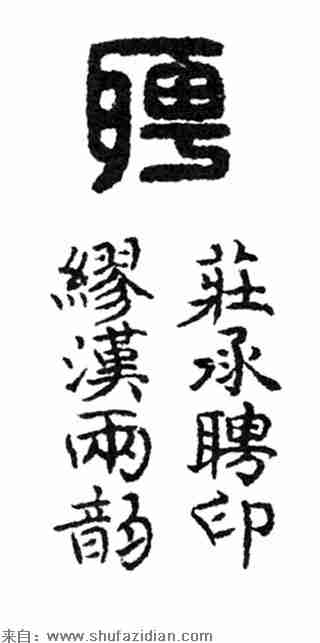 聘
莊承聘印
繆漢兩韵
来自:www.shufazidian.com